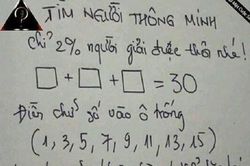 TÌM NGƯỜI THÔNG MINH
Chỉ 2% người giải được thôi nhé!
□ + □ + □ = 30
Điền chữ số vào ô trống
(1, 3, 5, 7, 9, 11, 13, 15)